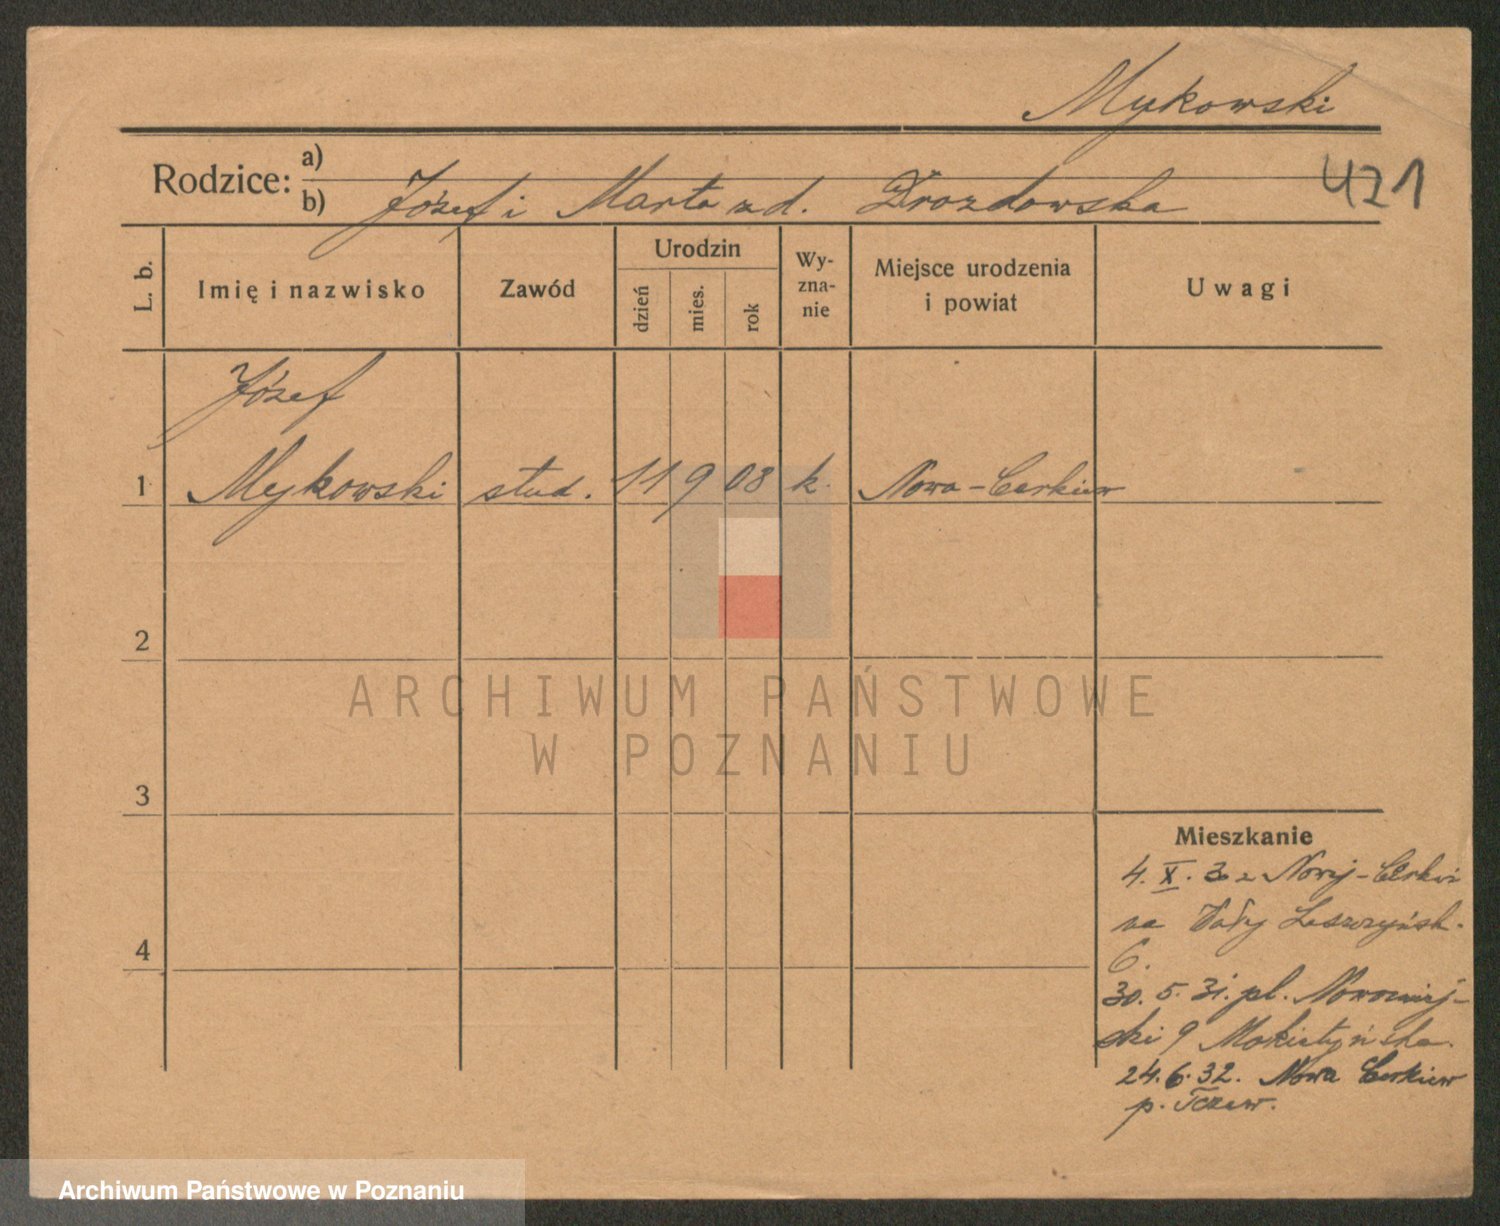 Mykowski
Rodzice: a)
b) Józef i Marta z d. Drozdowska
421
L. b.
Imię i nazwisko
Zawód
Urodzin
dzień
mies.
rok
Wy-
zna-
nie
Miejsce urodzenia
i powiat
Uwagi
Józef
1 Mykowski stud. 11 9 08 k. Nowa-Cerkiew
2
3
4
ARCHIWUM PAŃSTWOWE
W POZNANIU
Mieszkanie
4. X. 3 z Nowej-Cerkwi
na Wały Leszczyńsk.
6.
30. 5. 31. pl. Nowomiej-
ski 9
24. 6. 32. Nowa Cerkiew
p. Tczew.
Archiwum Państwowe w Poznaniu